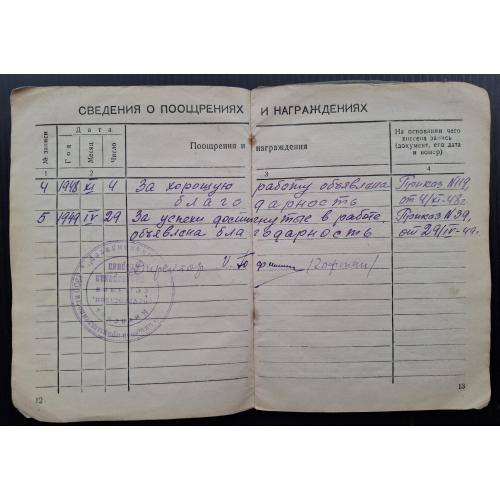 СВЕДЕНИЯ О ПООЩРЕНИЯХ И НАГРАЖДЕНИЯХ
№ записи
Дата
Год
Месяц
Число
Поощрения и награждения
На основании чего внесена запись (документ, его дата и номер)
1 2 3 4
4 1948 XI 4 За хорошую работу объявлена Приказ №119,
благодарность от 4/XI-48г.
5 1949 IV 29 За успехи достигнутые в работе Приказ №39,
объявлена благодарность от 29/IV-49г.
Директор
12
13